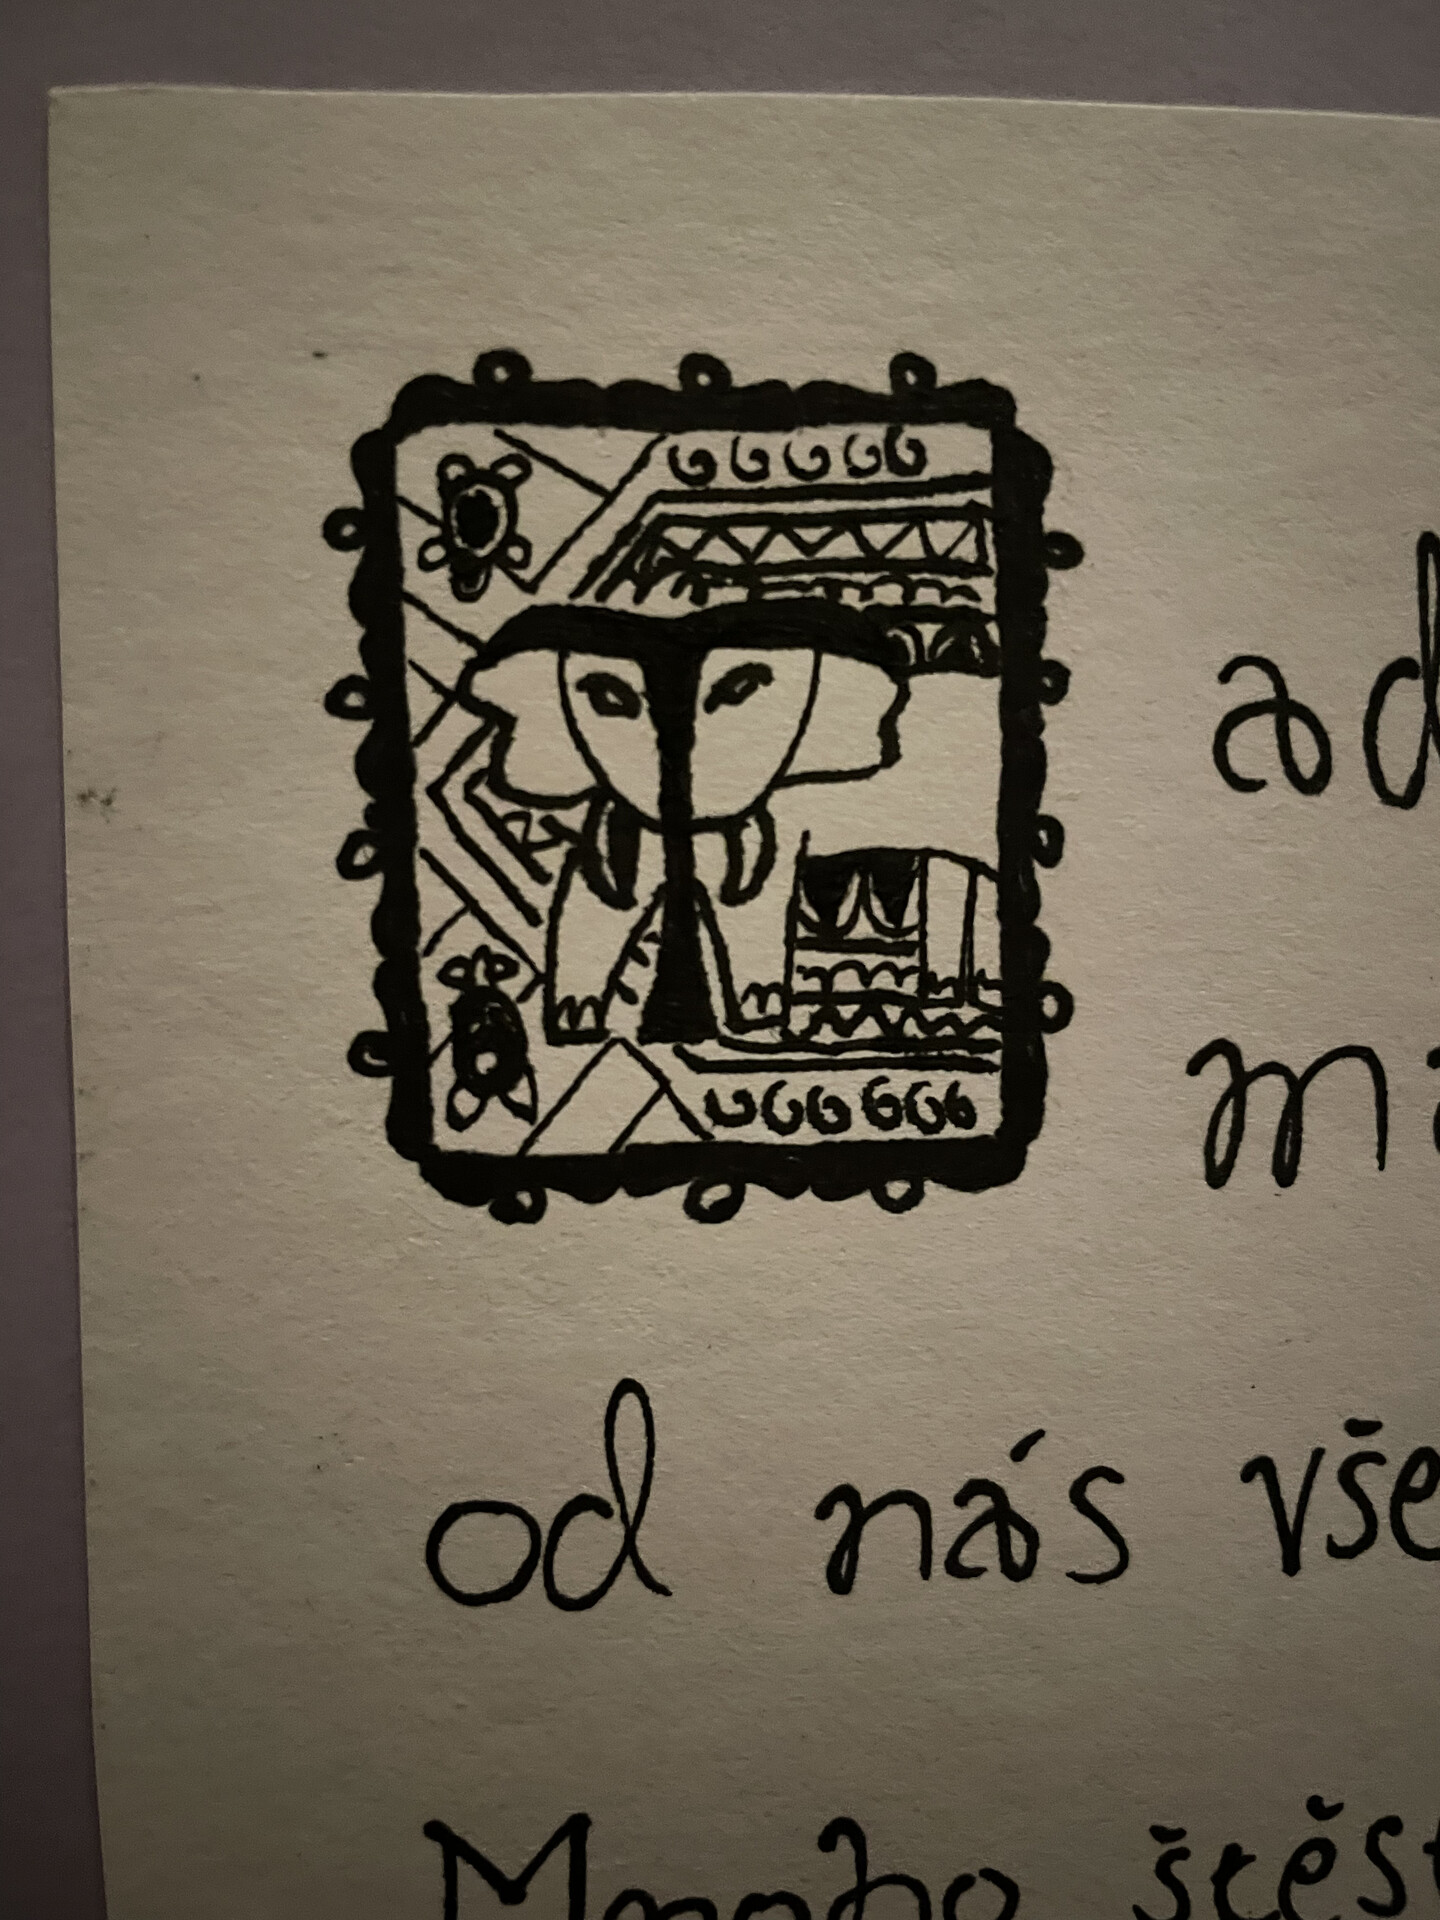 ad
od nás vše
Mnoho štěst